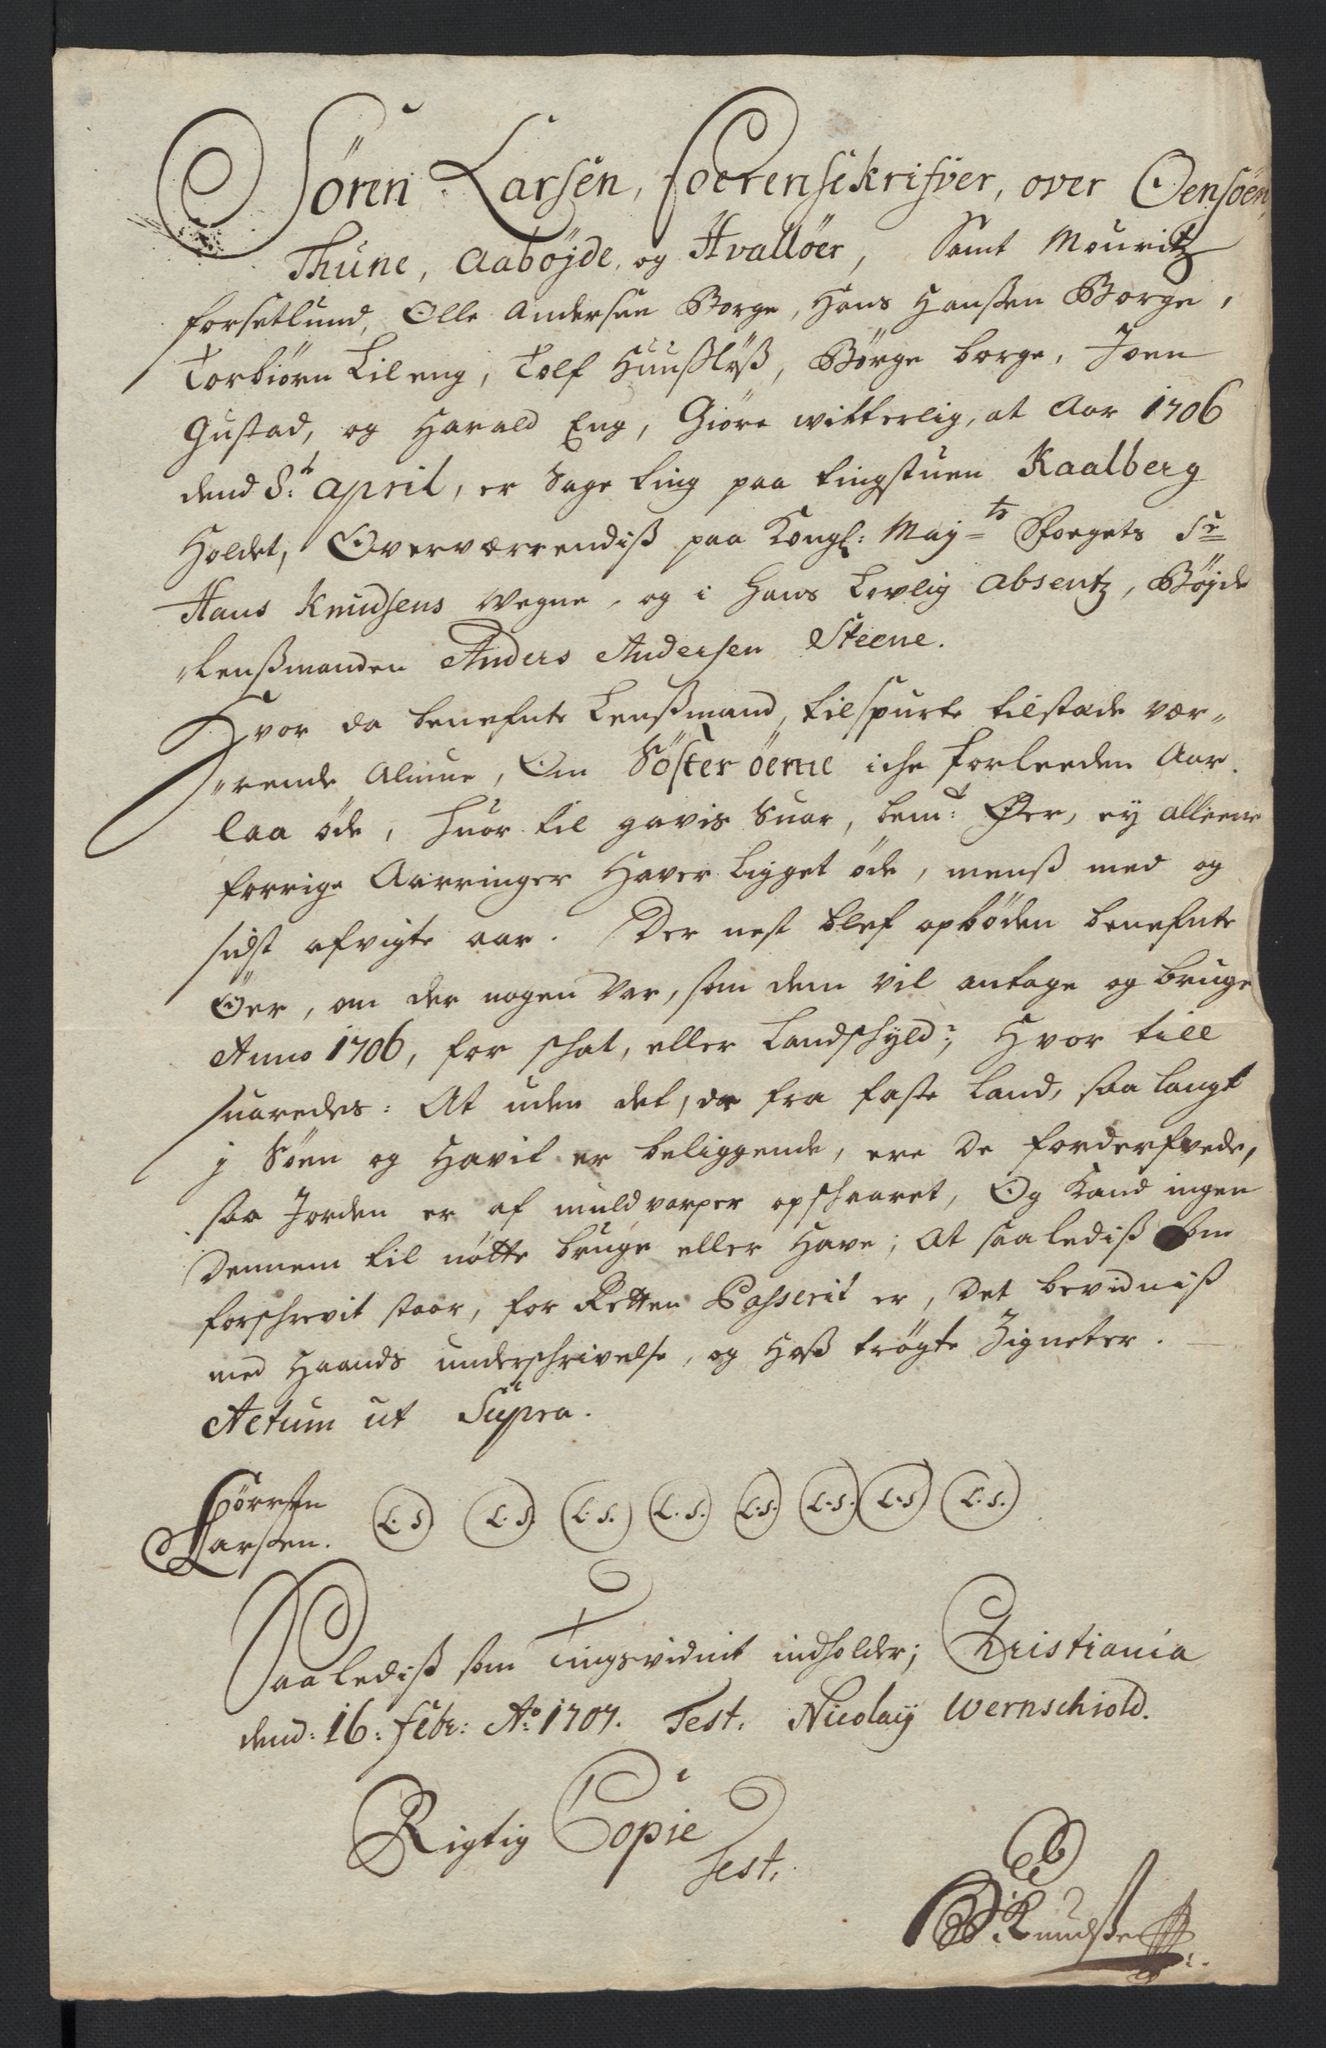 Sören Larsen, Soerenschrifver, over Oensöen,
Thune, Aabøjde, og Hvallöer, Samt Mouritz
forsetlund, Olle Andersen Borge, Hans Hansen Borge,
Torbiörn Lileng, Tolf Huusløß, Børge borge, Joen
Gustad, og Harald Eng, Giöre witterlig, at Aar 1706
dend 8.t April, er Sage ting paa tingstuen Kaalberg
Holdet, Overværrendiß paa Kongl: May=ts Foegets Sr
Hans Knudsens Wegne, og i hans Lovlig absentz, Bøjde
Lenßmanden Anders Andersen Steene.
Hvor da benefnte Lenßmand, tilspurte tilstæde vær„
„rende Almue, Om Söster öerne iche forleeden Aar
laa øde, huor til gavis Suar, bemt: Øer, ey alleene
forrige Aarringer Haver Ligget øde, menß med og
sidst afvigte aar. Der nest blef opböden benefnte
Öer, om der nogen Var, som dem vil antage og bruge
Anno 1706, for schat, eller Landschyld; Hvor till
suaredes: At uden det, de fra faste Land, saa langt
j Søen og Havit er beliggende, ere De forderfvede,
saa Jorden er af muldvarper opschaaret, Og Kand ingen
Dennem til nötte bruge eller Have; At saalediß som
forschrevit staar, for Retten Passerit er, Det bevidniß
med Haands underschrivelse, og Hoß trøgte Zigneter.
Actum ut Supra.
Sörren
Larsen. L. S. L. S. L. S. L. S. L. S. L. S. L. S. L. S.
Saalediß som Tingsvidnit indholder; Christiania
dend: 16: febr: Ao: 1707. Test. Nicolaij Wernschiold.
Rigtig Copie
Test.
H: Knudssen